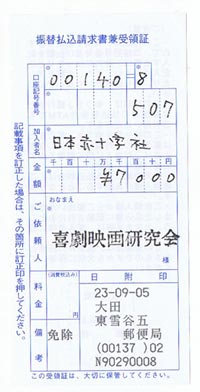 振替払込請求書兼受領証
口座記号番号
00140=8
507
加入者名
日本赤十字社
金額
千百十万千百十円
¥7000
ご依頼人
おなまえ
喜劇映画研究会
様
料金
(消費税込み)
備考
免除
日附印
23-09-05
大田
東雪谷五
郵便局
(00137)02
N90290008
記載事項を訂正した場合は、その箇所に訂正印を押してください。
この受領証は、大切に保管してください。